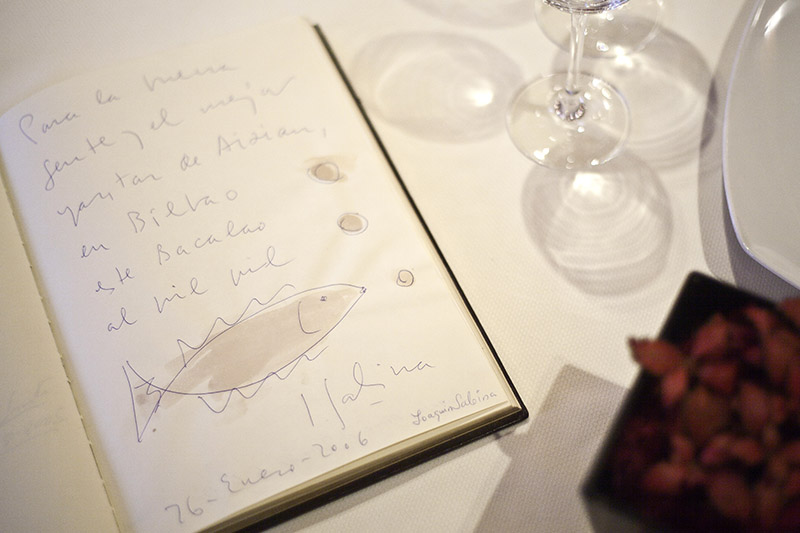 Para la buena
gente y el mejor
yantar de Aizian,
en Bilbao
este Bacalao
al pil pil
J Sabina
Joaquin Sabina
26-Enero-2006